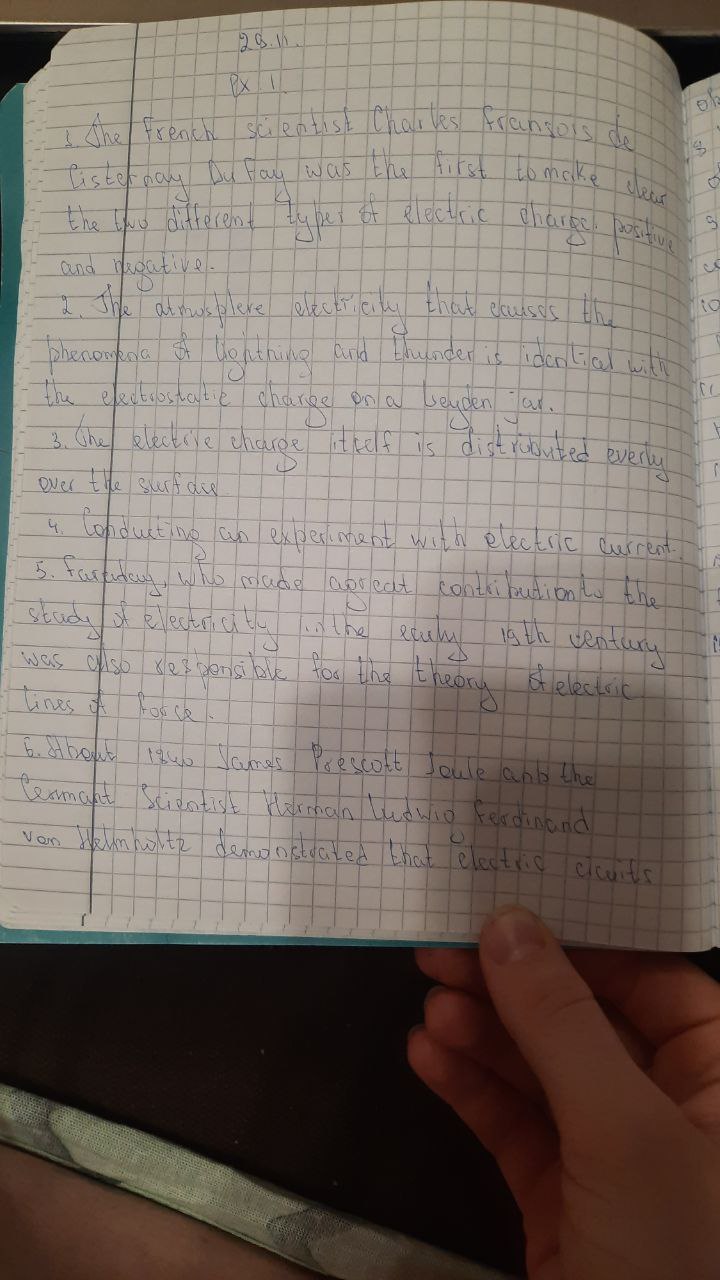 28.11.
Ex 1.
1. The french scientist Charles fransois de
Cisternay Du Fay was the first to make clear
the two different types of electric charge. positive
and negative.
2. The atmosplere electricity that causes the
phenomena of lightning and thunder is idential with
the electrostatic charge on a leyden jar.
3. The electric charge itself is distributed everly
over the surface
4. Conducting an experiment with electric current.
5. Faraday, who made agreat contribution to the
study of electricity in the early 19th century
was also responsible for the theory of electric
lines of force.
6. About 1840 James Prescott Joule anb the
Germant Scientist Herman Ludwig Ferdinand
von Helmholtz demonstrated that electric cicuits